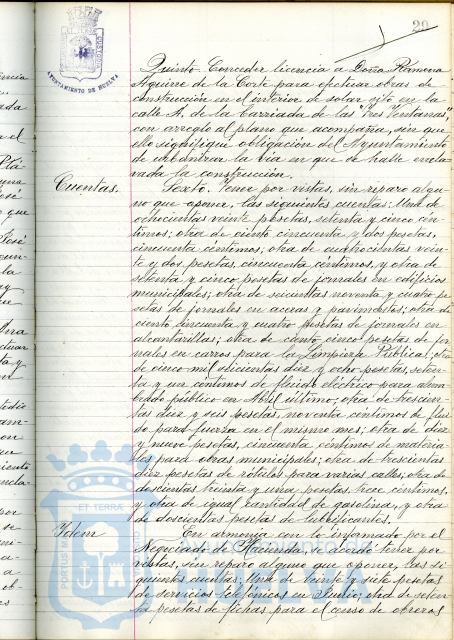 20
AYUNTAMIENTO DE HUELVA
Quinto. Conceder licencia a Doña Ramona
Aguirre de la Corte para efectuar obras de
construcción en el interior de solar sito en la
calle A, de la Barriada de las "Tres Ventanas",
con arreglo al plano que acompaña, sin que
ello signifique obligación del Ayuntamiento
de la vía en que se halle encla-
vada la construcción.
Cuentas.
Sexto. Tener por vistas, sin reparo algu-
no que oponer, las siguientes cuentas: Una de
ochocientas veinte pesetas, setenta y cinco cén-
timos; otra de ciento cincuenta y dos pesetas,
cincuenta céntimos; otra de cuatrocientas vein-
te y dos pesetas, cincuenta céntimos, y otra de
setenta y cinco pesetas de jornales en edificios
municipales; otra de seiscientas noventa y cuatro pe-
setas de jornales en aceras y pavimentos; otra de
ciento cincuenta y cuatro pesetas de jornales en
alcantarillas; otra de ciento cinco pesetas de jor-
nales en carros para la Limpieza Pública; otra
de cinco mil diez y ocho pesetas, seten-
ta y un céntimos de fluido eléctrico para alum-
brado público en Abril último; otra de trescien-
tas diez y seis pesetas, noventa céntimos de flui-
do para fuerza en el mismo mes; otra de diez
y nueve pesetas, cincuenta céntimos de materia-
les para obras municipales; otra de trescientas
diez pesetas de rótulos para varias calles; otra de
doscientas treinta y una pesetas, trece céntimos,
y otra de igual cantidad de gasolina, y otra
de doscientas pesetas de lubrificantes.
Idem
En armonía con lo informado por el
Negociado de Hacienda, se acordó tener por
vistas, sin reparo alguno que oponer, las si-
guientes cuentas: Una de veinte y siete pesetas
de servicios telefónicos en Junio; otra de seten-
ta pesetas de fichas para el censo de obreros